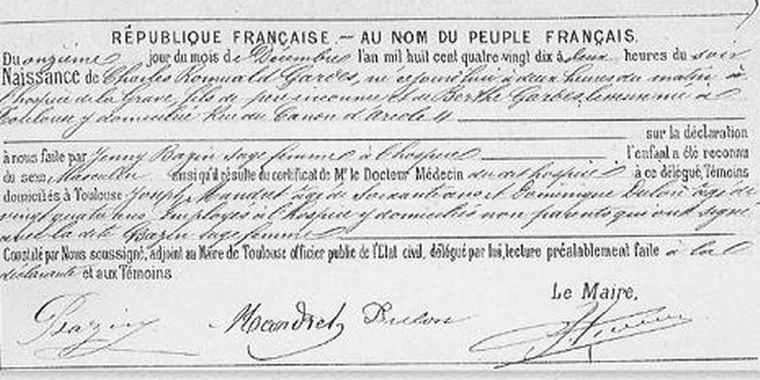 RÉPUBLIQUE FRANÇAISE. — AU NOM DU PEUPLE FRANÇAIS.
Du onzième jour du mois de Décembre l'an mil huit cent quatre vingt dix à deux heures du soir
Naissance de Charles Romuald Gardes, né ce jourd'hui à deux heures du matin à
l'hospice de la Grave, fils de père inconnu et de Berthe Gardes, née à
Toulouse y domiciliée Rue du Canon d'Arcole 4
sur la déclaration
à nous faite par Jenny Bazin sage femme à l'hospice l'enfant a été reconnu
du sexe Masculin ainsi qu'il résulte du certificat de Mr le Docteur Médecin du dit hospice à ce délégué, Témoins
domiciliés à Toulouse Joseph Mandret âgé de soixante ans et Dominique Dulon âgé de
vingt quatre ans, Employés à l'hospice y domiciliés non parents qui ont signé
avec la dite Bazin sage femme
Constaté par Nous soussigné, adjoint au Maire de Toulouse officier public de l'Etat civil, délégué par lui, lecture préalablement faite à la
déclarante et aux Témoins
Le Maire,
Bazin Mandret Dulon